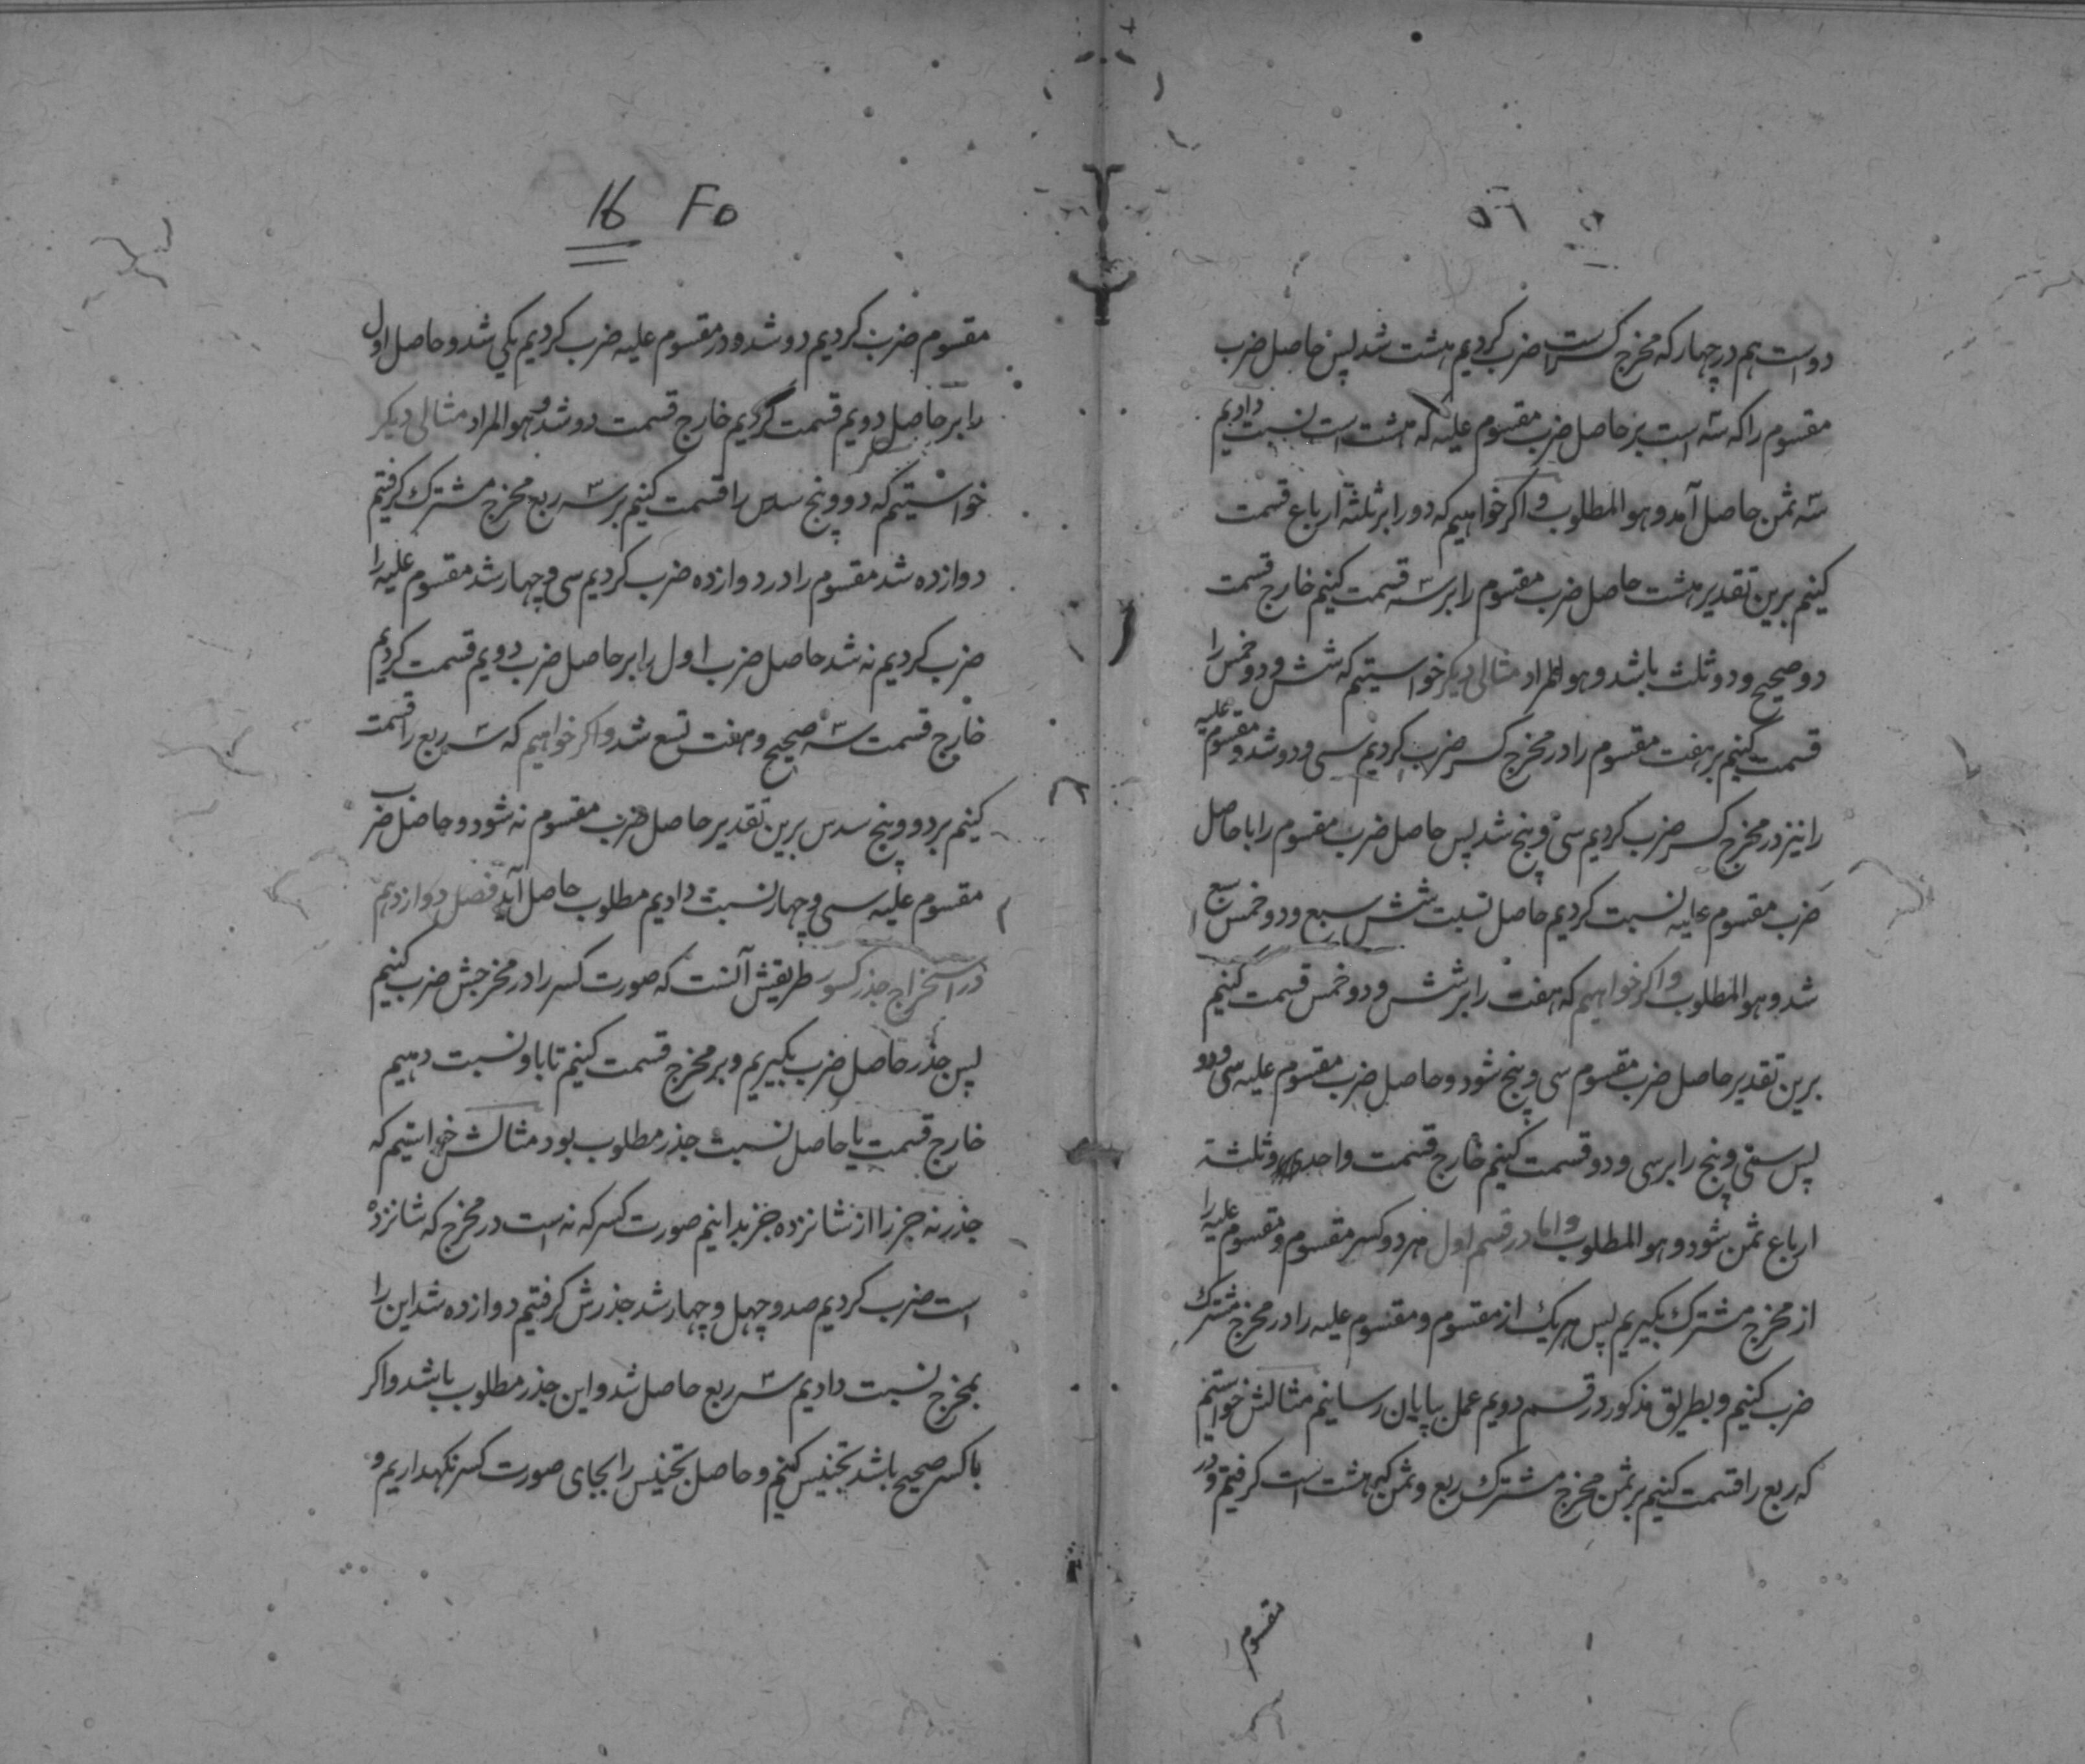 دو است هم در چهار که مخرج کسر است ضرب کردیم هشت شد پس حاصل ضرب
مقسوم را که سه است بر حاصل ضرب مقسوم علیه که هشت است نسبت دادیم
سه ثمن حاصل آمد و هو المطلوب و اکر خواهیم که دو را بر ثلثة ارباع قسمت
کنیم برین تقدیر هشت حاصل ضرب مقسوم را بر سه قسمت کنیم خارج قسمت
دو صحیح و دو ثلث باشد و هو المراد مثالی دیکر خواستیم که شش و دو خمس را
قسمت کنیم بر هفت مقسوم را در مخرج کسر ضرب کردیم سی و دو شد و مقسوم علیه
را نیز در مخرج کسر ضرب کردیم سی و پنج شد پس حاصل ضرب مقسوم را با حاصل
ضرب مقسوم علیه نسبت کردیم حاصل نسبت شش سبع و دو خمس سبع
شد و هو المطلوب و اکر خواهیم که هفت را بر شش و دو خمس قسمت کنیم
برین تقدیر حاصل ضرب مقسوم سی و پنج شود و حاصل ضرب مقسوم علیه سی و دو
پس سی و پنج را بر سی و دو قسمت کنیم خارج قسمت واحد و ثلثة
ارباع ثمن شود و هو المطلوب و اما در قسم اول هر دو کسر مقسوم و مقسوم علیه را
از مخرج مشترک بکیریم پس هر یک از مقسوم و مقسوم علیه را در مخرج مشترک
ضرب کنیم و بطریق مذکور در قسم دویم عمل بپایان رسانیم مثالش خواستیم
که ربع را قسمت کنیم بر ثمن مخرج مشترک ربع و ثمن که هشت است کرفتیم و در
مقسوم
16 F٥
مقسوم ضرب کردیم دو شد و در مقسوم علیه ضرب کردیم یکی شد و حاصل اول
را بر حاصل دویم قسمت کردیم خارج قسمت دو شد و هو المراد مثالی دیکر
خواستیم که دو و پنج سدس را قسمت کنیم بر سه ربع مخرج مشترک کرفتیم
دوازده شد مقسوم را در دوازده ضرب کردیم سی و چهار شد مقسوم علیه را
ضرب کردیم نه شد حاصل ضرب اول را بر حاصل ضرب دویم قسمت کردیم
خارج قسمت سه صحیح و هفت تسع شد و اکر خواهیم که سه ربع را قسمت
کنیم بر دو و پنج سدس برین تقدیر حاصل ضرب مقسوم نه شود و حاصل ضرب
مقسوم علیه سی و چهار نسبت دادیم مطلوب حاصل آید فصل دوازدهم
در استخراج جذر کسور طریقش آنست که صورت کسر را در مخرجش ضرب کنیم
پس جذر حاصل ضرب بکیریم و بر مخرج قسمت کنیم تا باو نسبت دهیم
خارج قسمت یا حاصل نسبت جذر مطلوب بود مثالش خواستیم که
جذر نه جزء را از شانزده جزء بدانیم صورت کسر که نه است در مخرج که شانزده
است ضرب کردیم صد و چهل و چهار شد جذرش کرفتیم دوازده شد این را
بمخرج نسبت دادیم سه ربع حاصل شد و این جذر مطلوب باشد و اکر
با کسر صحیح باشد تجنیس کنیم و حاصل تجنیس را بجای صورت کسر نکهداریم و